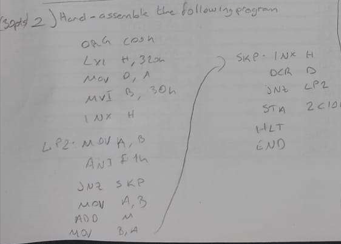 2) Hand-assemble the following program
ORG
LXI H, 320h
MOV D, A
MVI B, 30h
INX H
LP2- MOV A, B
ANI F1h
JNZ SKP
MOV A, B
ADD M
MOV B, A
SKP- INX H
DCR D
JNZ LP2
STA
HLT
END